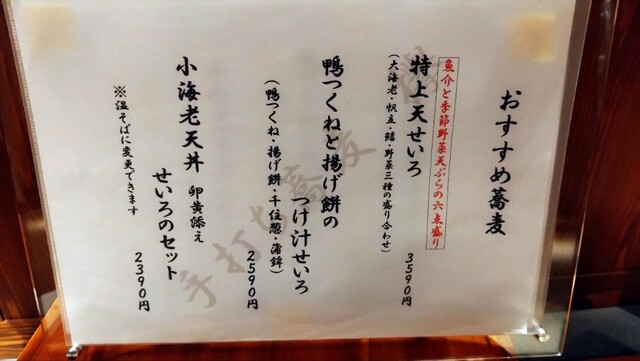 おすすめ蕎麦
魚介と季節野菜天ぷらの六点盛り
特上天せいろ
(大海老・帆立・鱚・野菜三種の盛り合わせ)
3590円
鴨つくねと揚げ餅の
つけ汁せいろ
(鴨つくね・揚げ餅・千住葱・蒲鉾)
2590円
小海老天丼 卵黄添え
せいろのセット
※温そばに変更できます
2390円
手打ち蕎麦